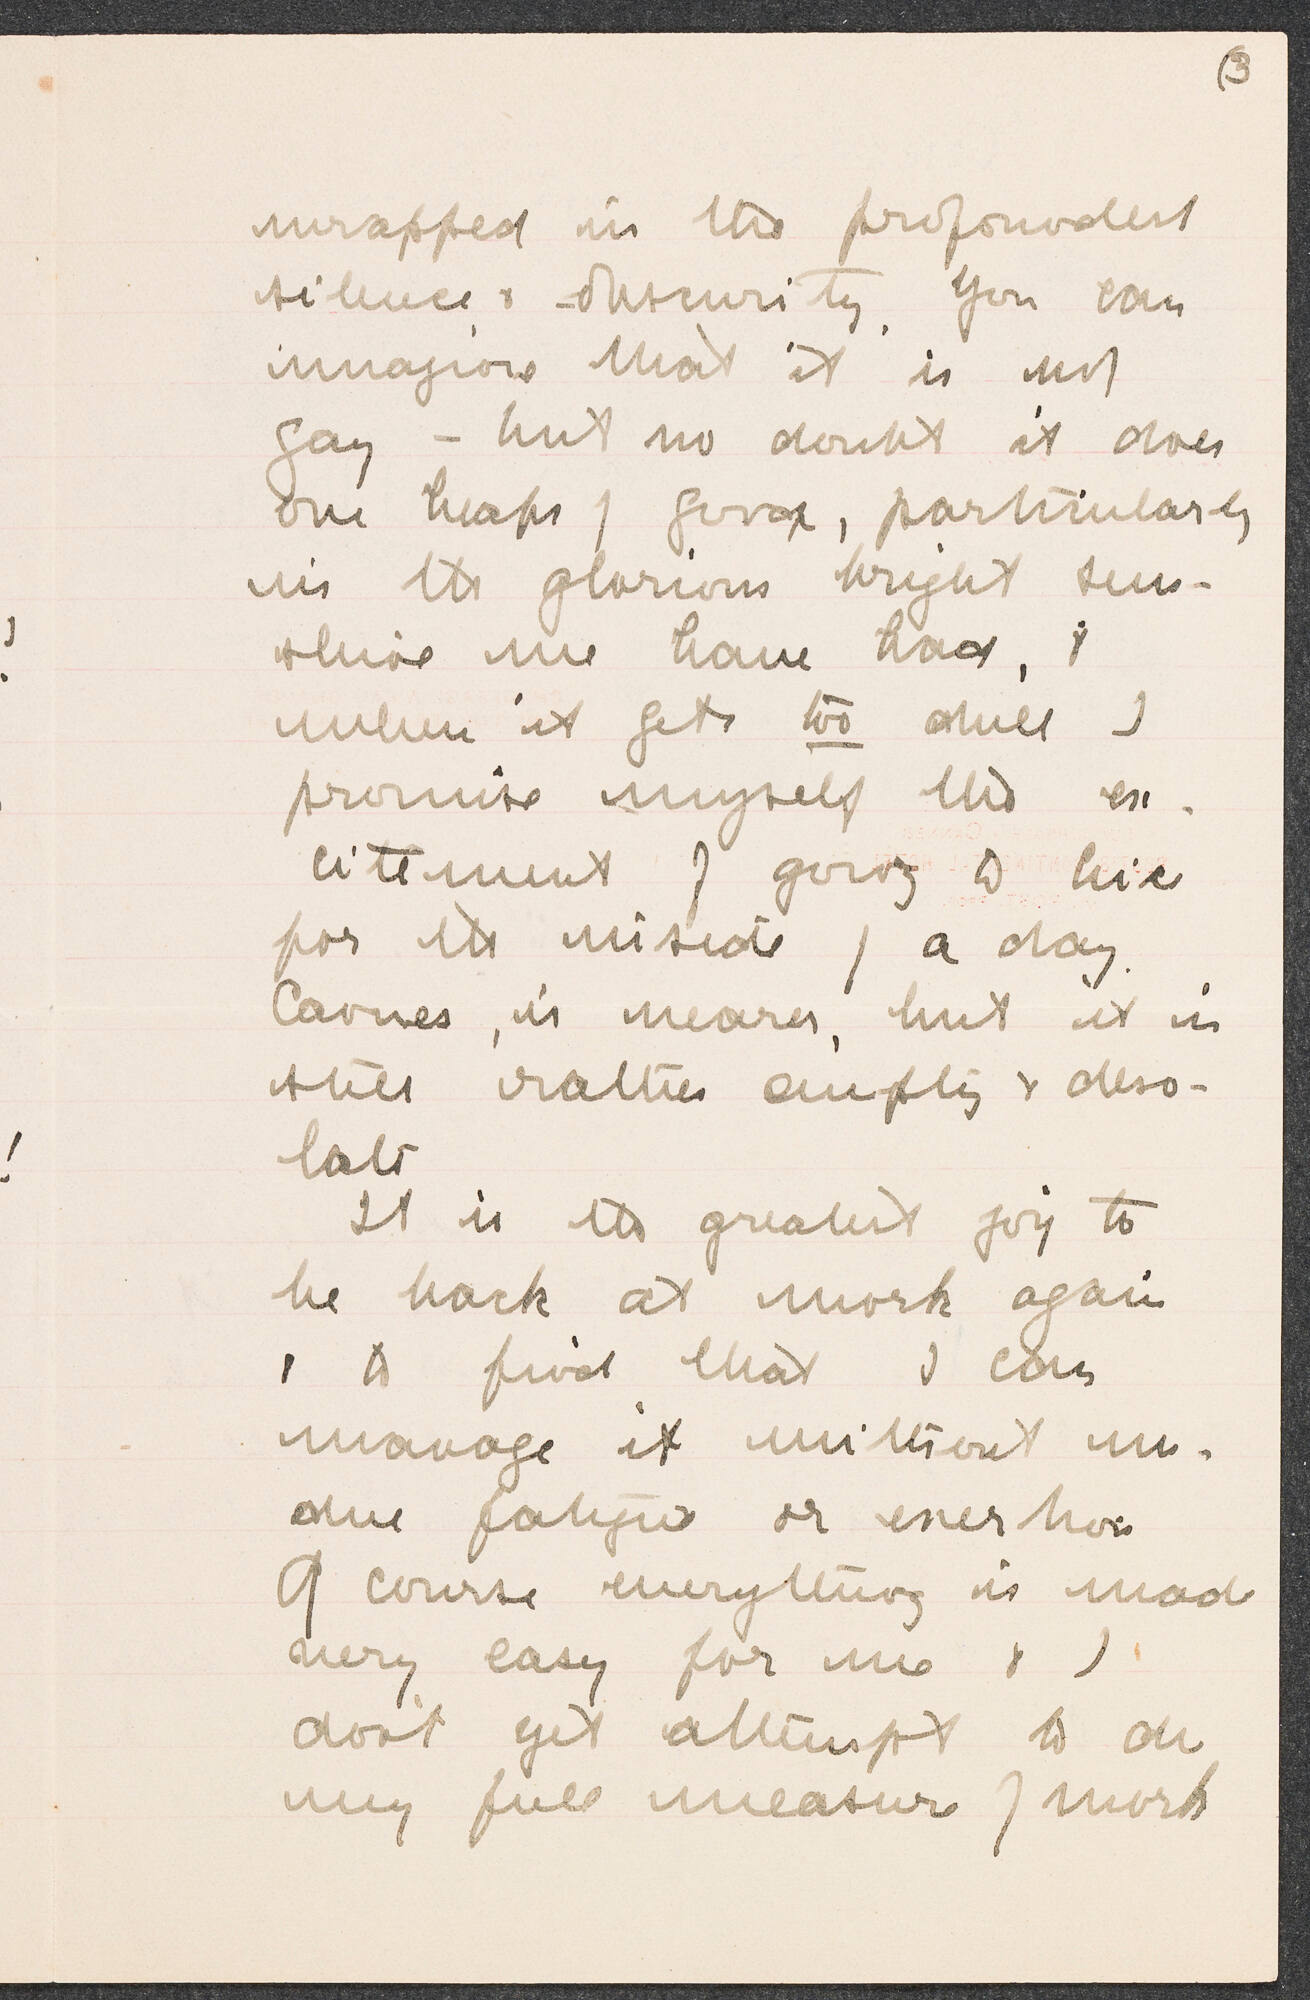 (3
wrapped in the profoundest
silence & obscurity. You can
imagine that it is not
gay – but no doubt it does
one heaps of good, particularly
in the glorious bright sun-
shine we have had, &
when it gets too dull I
promise myself the ex-
citement of going to
for the inside of a day.
Cannes is nearer, but it is
still rather empty & deso-
late
It is the greatest joy to
be back at work again
& to find that I can
manage it without un-
due fatigue or exertion
Of course everything is made
very easy for me & I
don't yet attempt to do
my full measure of work